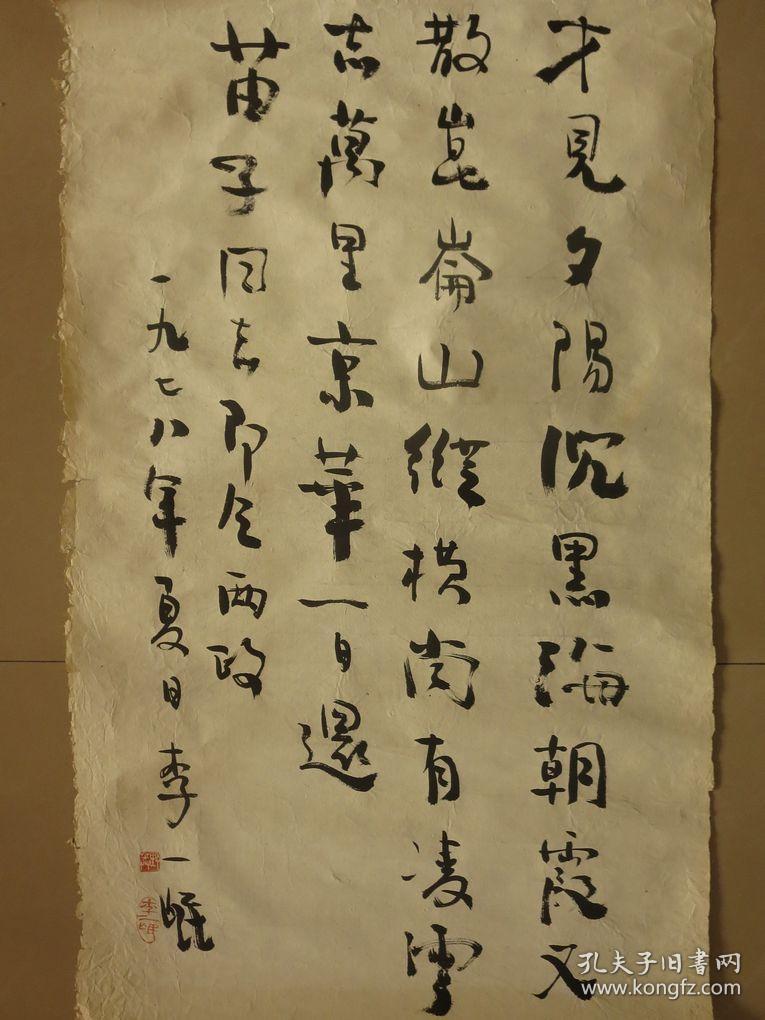 才見夕陽沉黑海朝霞又
散崑崙山縱横尚有凌雲
志萬里京華一日還
苗子同志即令两政
一九七八年夏日李一氓
孔夫子旧书网
www.kongfz.com